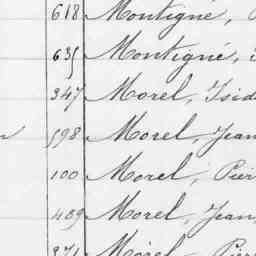 618 Montigné,
635 Montigné,
347 Morel, Isid
598 Morel, Jean
100 Morel, Pier
409 Morel, Jean,
371 Morel, Pier